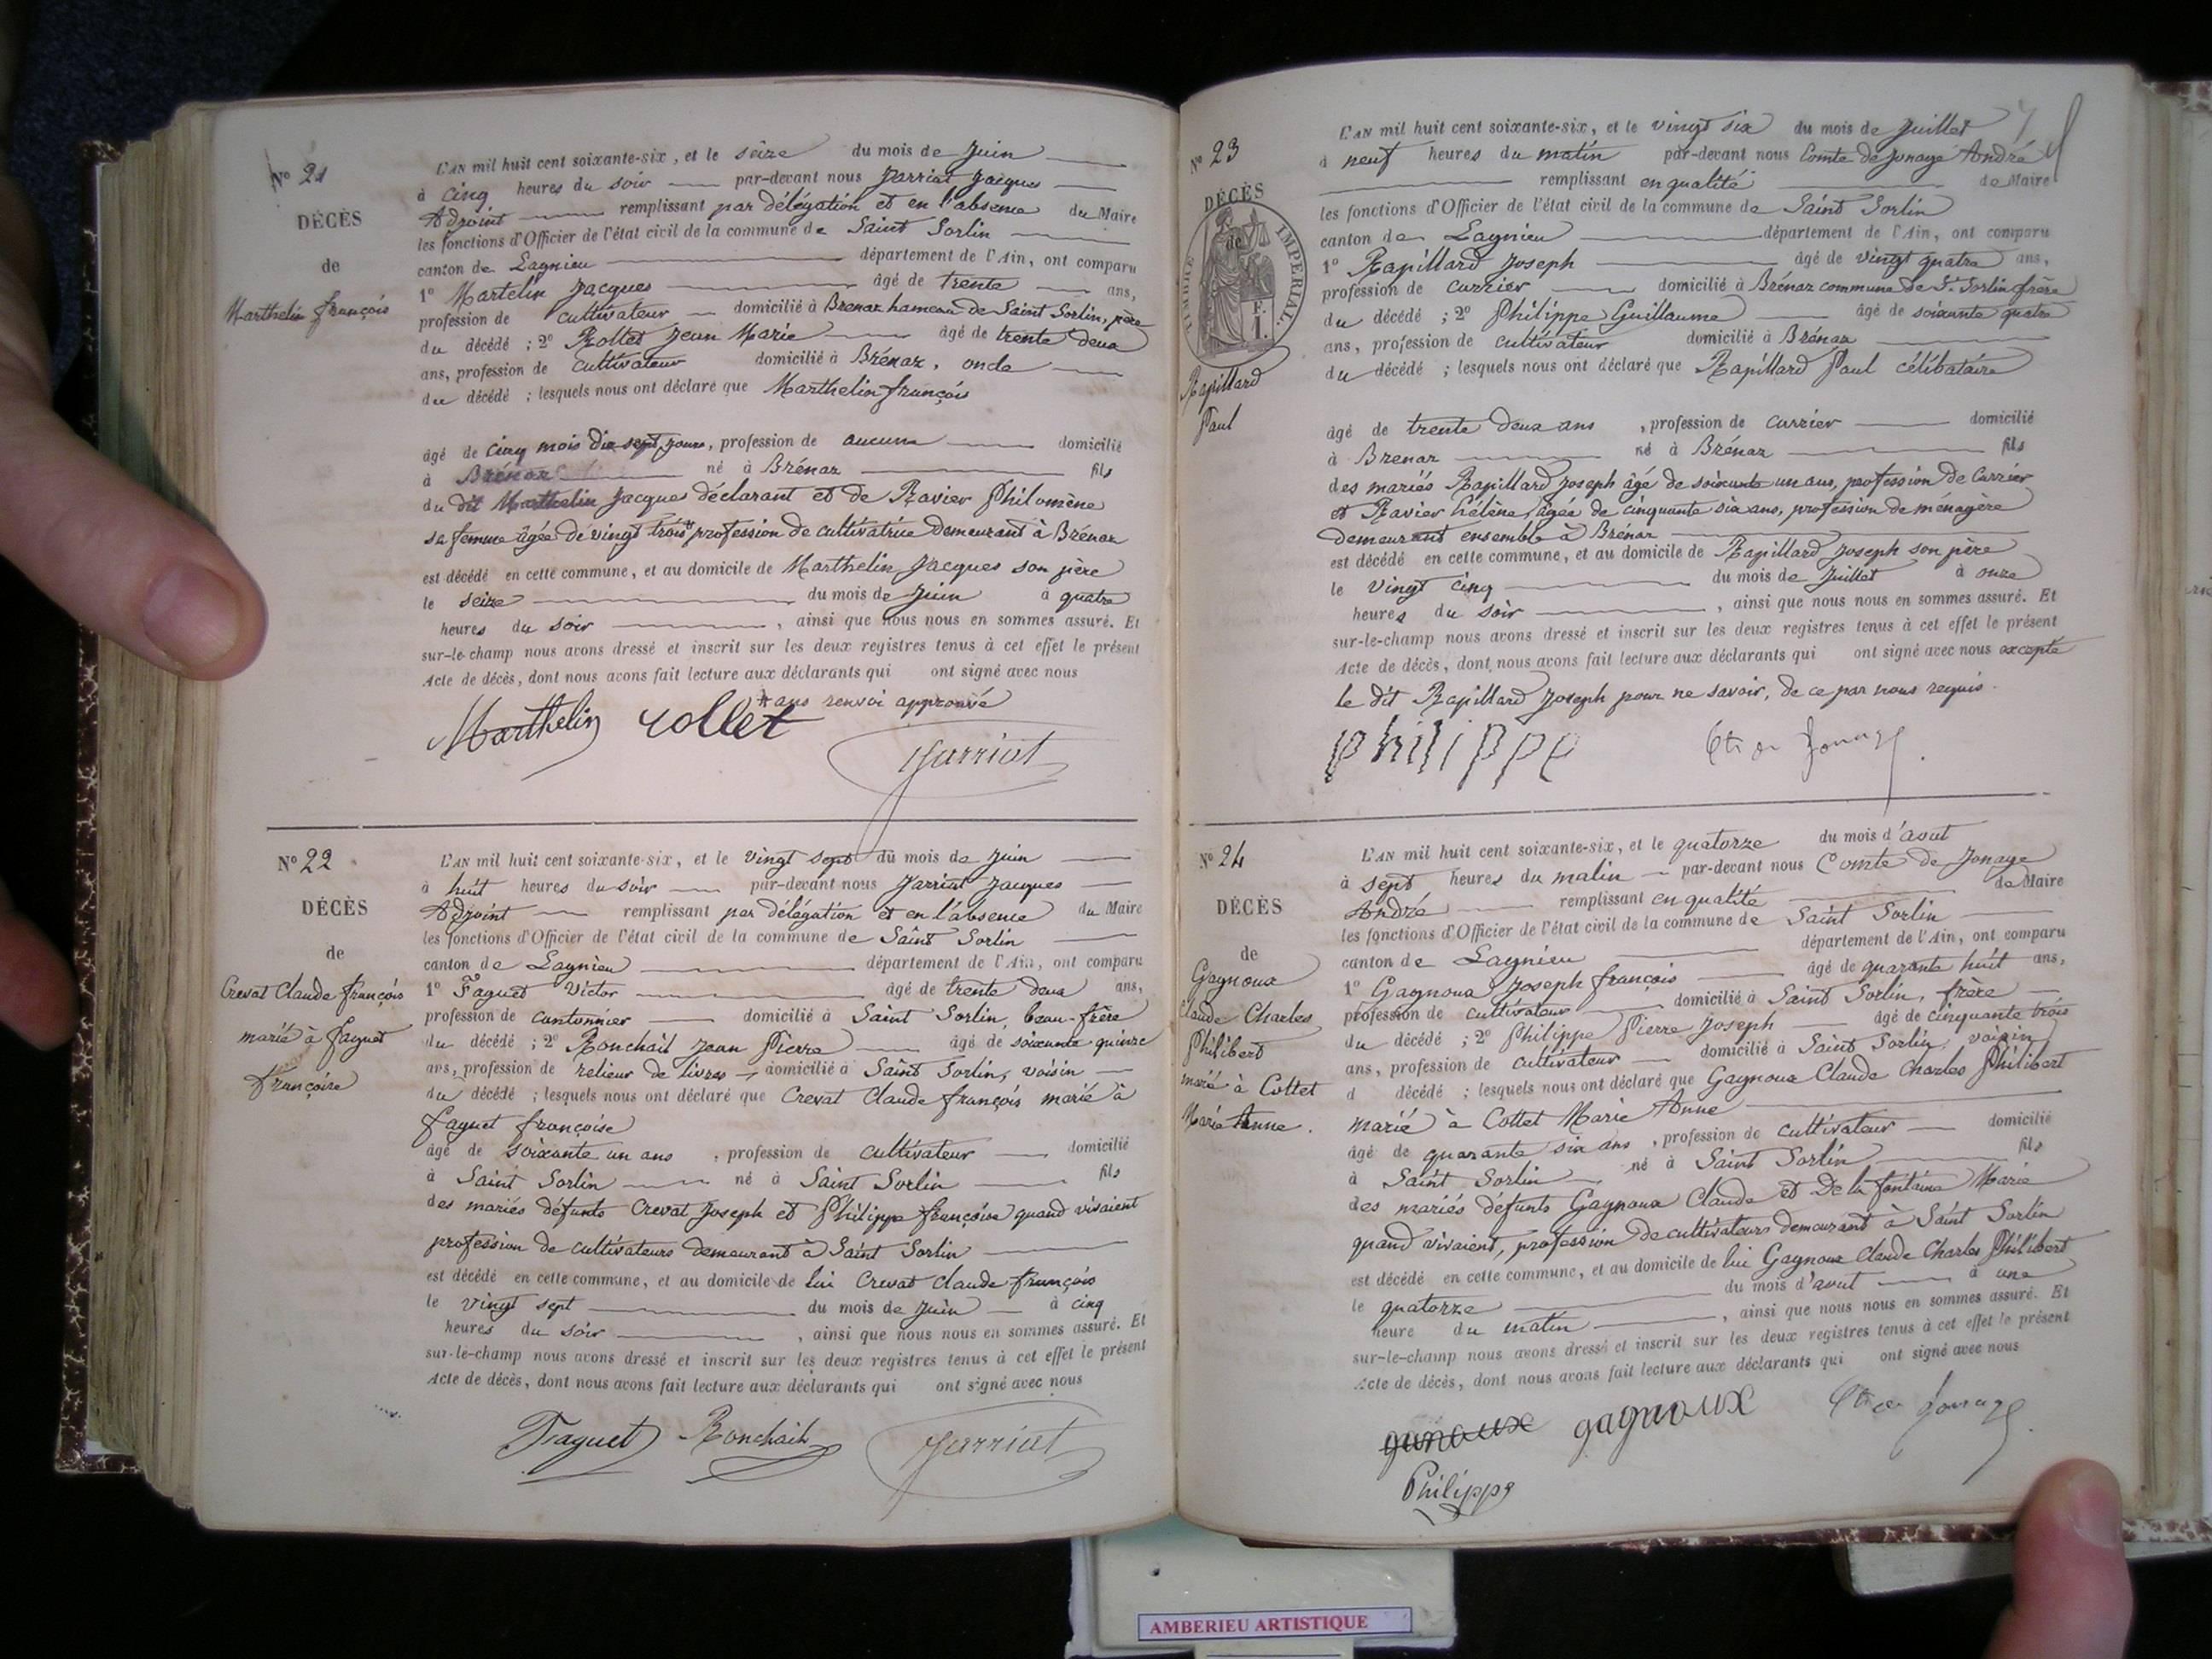 N° 21
DÉCÈS
de
Marthelin françois
L'AN mil huit cent soixante-six, et le seize du mois de Juin
à cinq heures du soir par-devant nous Jarriat Jacques
Adjoint remplissant par délégation et en l'absence du Maire
les fonctions d'Officier de l'état civil de la commune de Saint Sorlin
canton de Lagnieu département de l'Ain, ont comparu
1° Martelin Jacques âgé de trente ans,
profession de cultivateur domicilié à Brenaz hameau de Saint Sorlin, père
du décédé ; 2° Rollet Jean Marie âgé de trente deux
ans, profession de cultivateur domicilié à Brénaz, oncle
du décédé ; lesquels nous ont déclaré que Marthelin françois
âgé de cinq mois dix sept jours, profession de aucune domicilié
à Brénaz né à Brénaz fils
du dit Marthelin Jacques déclarant et de Ravier Philomène
sa femme âgée de vingt trois * profession de cultivatrice demeurant à Brénaz
est décédé en cette commune, et au domicile de Marthelin Jacques son père
le seize du mois de Juin à quatre
heures du soir , ainsi que nous nous en sommes assuré. Et
sur-le-champ nous avons dressé et inscrit sur les deux registres tenus à cet effet le présent
Acte de décès, dont nous avons fait lecture aux déclarants qui ont signé avec nous
* ans renvoi approuvé
Marthelin rollet
Jarriat
N° 22
DÉCÈS
de
Crevat Claude françois
marié à faguet
françoise
L'AN mil huit cent soixante-six, et le vingt sept du mois de Juin
à huit heures du soir par-devant nous Jarriat Jacques
Adjoint remplissant par délégation et en l'absence du Maire
les fonctions d'Officier de l'état civil de la commune de Saint Sorlin
canton de Lagnieu département de l'Ain, ont comparu
1° Faguet Victor âgé de trente deux ans,
profession de cantonnier domicilié à Saint Sorlin, beau-frère
du décédé ; 2° Ronchail Jean Pierre âgé de soixante quinze
ans, profession de relieur de livres domicilié à Saint Sorlin, voisin
du décédé ; lesquels nous ont déclaré que Crevat Claude françois marié à
faguet françoise
âgé de soixante un ans , profession de cultivateur domicilié
à Saint Sorlin né à Saint Sorlin fils
des mariés défunts Crevat Joseph et Philippe françoise quand vivaient
profession de cultivateurs demeurant à Saint Sorlin
est décédé en cette commune, et au domicile de lui Crevat Claude françois
le vingt sept du mois de Juin à cinq
heures du soir , ainsi que nous nous en sommes assuré. Et
sur-le-champ nous avons dressé et inscrit sur les deux registres tenus à cet effet le présent
Acte de décès, dont nous avons fait lecture aux déclarants qui ont signé avec nous
Faguet Ronchail Jarriat
N° 23
DÉCÈS
de
TIMBRE IMPERIAL.
Rapillard
Paul
L'AN mil huit cent soixante-six, et le vingt six du mois de Juillet
à neuf heures du matin par-devant nous Comte de Jonage André
remplissant en qualité de Maire
les fonctions d'Officier de l'état civil de la commune de Saint Sorlin
canton de Lagnieu département de l'Ain, ont comparu
1° Rapillard Joseph âgé de vingt quatre ans,
profession de carrier domicilié à Brénaz commune de St. Sorlin frère
du décédé ; 2° Philippe Guillaume âgé de soixante quatre
ans, profession de cultivateur domicilié à Brénaz
du décédé ; lesquels nous ont déclaré que Rapillard Paul célibataire
âgé de trente deux ans , profession de carrier domicilié
à Brenaz né à Brénaz fils
des mariés Rapillard Joseph âgé de soixante un ans, profession de carrier
et Ravier hélène, âgée de cinquante six ans, profession de ménagère
demeurant ensemble à Brénaz
est décédé en cette commune, et au domicile de Rapillard Joseph son père
le vingt cinq du mois de Juillet à onze
heures du soir , ainsi que nous nous en sommes assuré. Et
sur-le-champ nous avons dressé et inscrit sur les deux registres tenus à cet effet le présent
Acte de décès, dont nous avons fait lecture aux déclarants qui ont signé avec nous excepté
le dit Rapillard Joseph pour ne savoir, de ce par nous requis.
philippe Cte de Jonage
N° 24
DÉCÈS
de
Gagnoux
Claude Charles
Philibert
marié à Cottet
Marie Anne.
L'AN mil huit cent soixante-six, et le quatorze du mois d'aout
à sept heures du matin par-devant nous Comte de Jonage
André remplissant en qualité de Maire
les fonctions d'Officier de l'état civil de la commune de Saint Sorlin
canton de Lagnieu département de l'Ain, ont comparu
1° Gagnoux Joseph françois âgé de quarante huit ans,
profession de cultivateur domicilié à Saint Sorlin, frère
du décédé ; 2° Philippe Pierre Joseph âgé de cinquante trois
ans, profession de cultivateur domicilié à Saint Sorlin, voisin
d décédé ; lesquels nous ont déclaré que Gagnoux Claude Charles Philibert
marié à Cottet Marie Anne
âgé de quarante six ans , profession de cultivateur domicilié
à Saint Sorlin né à Saint Sorlin fils
des mariés défunts Gagnoux Claude et De la fontaine Marie
quand vivaient, profession de cultivateurs demeurant à Saint Sorlin
est décédé en cette commune, et au domicile de lui Gagnoux Claude Charles Philibert
le quatorze du mois d'aout à une
heure du matin , ainsi que nous nous en sommes assuré. Et
sur-le-champ nous avons dressé et inscrit sur les deux registres tenus à cet effet le présent
Acte de décès, dont nous avons fait lecture aux déclarants qui ont signé avec nous
gagnoux Cte de Jonage
Philippe
AMBERIEU ARTISTIQUE